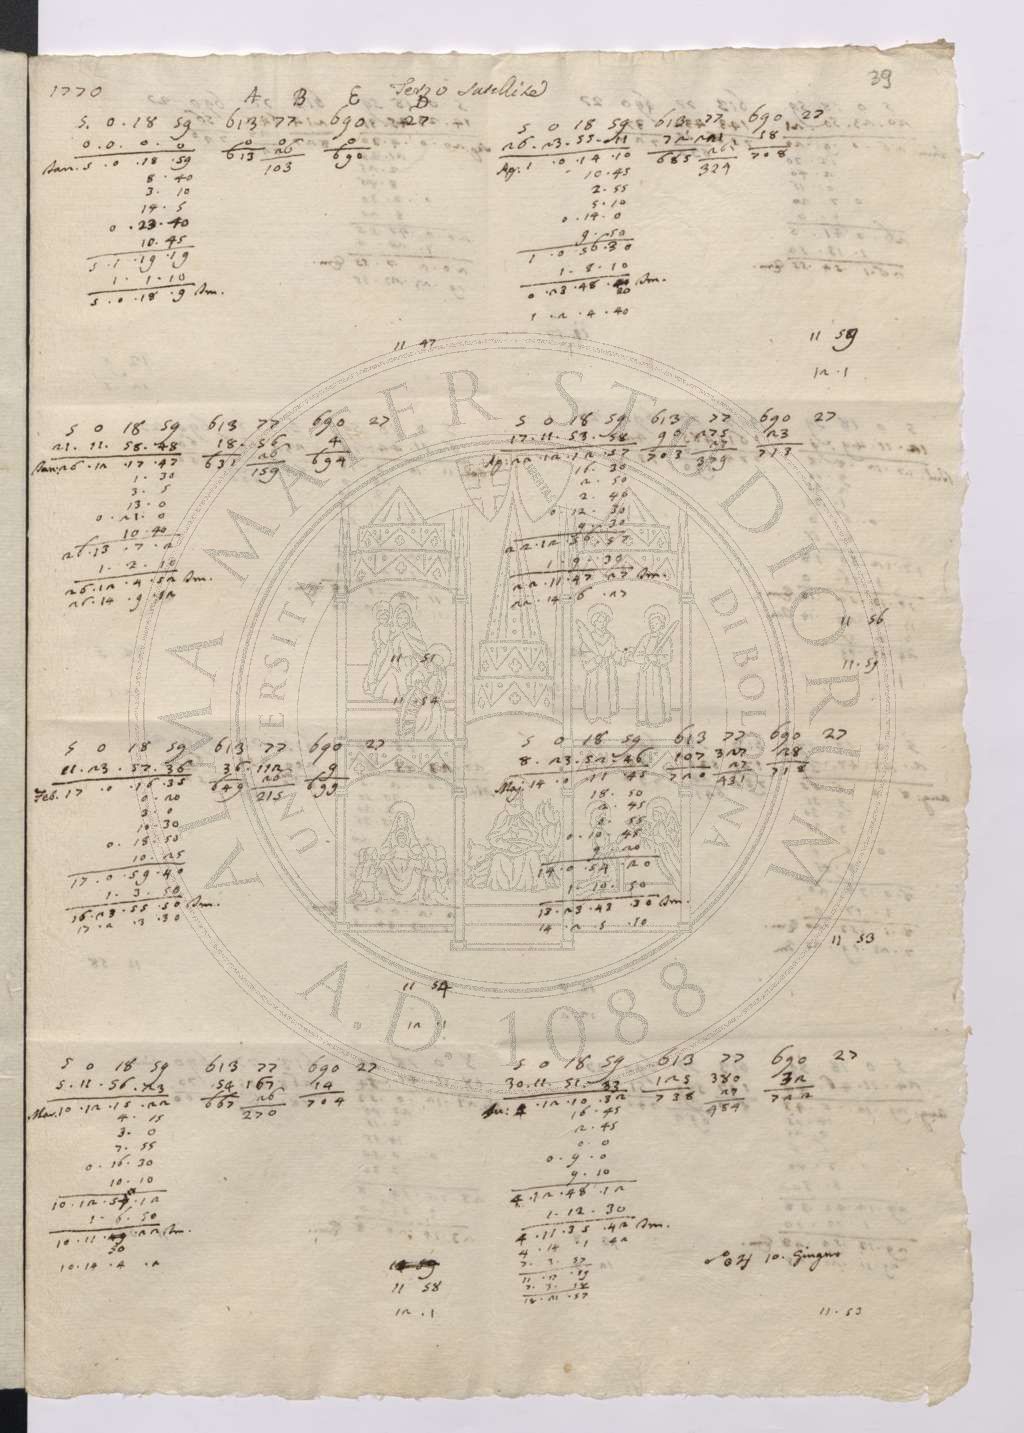 1770 A B E D Terzo Satellite 39
5. 0. 18 59 613 77 690 27
0. 0. 0. 0 0 0 0
Jan. 5. 0. 18. 59 613 26 690
103
8. 40
3. 10
14. 5
0. 23. 40
10. 45
5. 1. 19. 19
1. 1. 10
5. 0. 18. 9 Im.
11 47
5 0 18 59 613 77 690 27
26. 23. 55. 11 72 221 18
Ap: 1. 0. 14. 10 685 26 708
324
10. 45
2. 55
5. 10
0. 14. 0
9. 50
1. 0. 56. 30
1. 8. 10
0. 23. 48. 20 Im.
1. 2. 4. 40
11 59
12. 1
5 0 18 59 613 77 690 27
21. 11. 58. 48 18. 56 4
Jan: 26. 12. 17. 47 631 26 694
159
1. 30
3. 5
13. 0
0. 21. 0
10. 40
26. 13. 7. 2
1. 2. 10
26. 12. 4. 52 Im.
26. 14. 9. 12
11 51
11 54
5 0 18 59 613 77 690 27
17. 11. 53. 58 90 275 23
Ap: 22. 12. 12. 57 703 27 713
379
16. 30
2. 50
2. 40
0. 12. 30
9. 30
22. 12. 56. 57
1. 9. 30
22. 11. 47. 27 Im.
22. 14. 6. 27
11 56
11. 59
5 0 18 59 613 77 690 27
11. 23. 57. 36 36. 112 9
Feb. 17. 0. 16. 35 649 26 699
215
0. 20
3. 0
10. 30
0. 18. 50
10. 25
17. 0. 59. 40
1. 3. 50
16. 23. 55. 50 Im.
17. 2. 3. 30
11 54
12. 1
5 0 18 59 613 77 690 27
8. 23. 52. 46 107 327 28
Maj: 14. 0. 11. 45 720 27 718
431
18. 50
2. 45
2. 55
0. 10. 45
9. 20
14. 0. 54. 20
1. 10. 50
13. 23. 43. 30 Im.
14. 2. 5. 50
11 53
5 0 18 59 613 77 690 27
5. 11. 56. 23 54 167 14
Mar. 10. 12. 15. 22 667 26 704
270
4. 15
3. 0
7. 55
0. 16. 30
10. 10
10. 12. 57. 12
1. 6. 50
10. 11. 49. 22 Im.
50
10. 14. 4. 2
11 58
12. 1
5 0 18 59 613 77 690 27
30. 11. 51. 33 125 380 32
4. 12. 10. 32 738 27 722
484
16. 45
2. 45
0. 0
0. 9. 0
9. 10
4. 12. 48. 12
1. 12. 30
4. 11. 35. 42 Im.
4. 14. 1. 42
7. 3. 57
☍☉♃ 10. Giugno
11. 53
ALMA MATER STUDIORUM
A.D. 1088
UNIVERSITÀ DI BOLOGNA